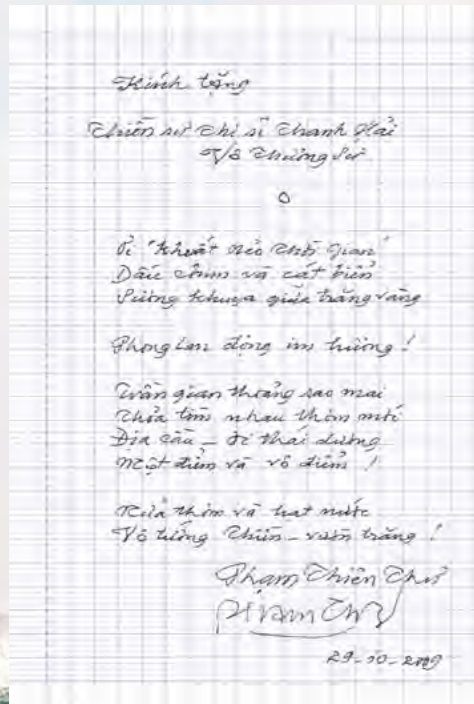 Kính tặng
Thiền sư Thi sĩ Thanh Hải
Vô Thượng Sư
Ơi "khuất nẻo thời gian"
Dấu chim và cát biển
Sương khuya giữa trăng vàng
Phong lan động im hường!
Trần gian thoảng sao mai
Thỏa tìm nhau thơm mướt
Địa cầu – ơi thái dương
Một điểm và vô điểm!
thơm và hạt nước
Vô tướng Thiền – vầng trăng!
Phạm Thiên Thư
29-10-2009